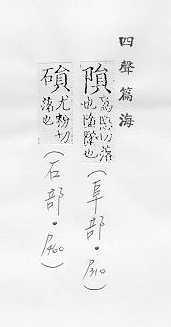 四聲篇海
隕
切落
也也
(阜部·P310)
磒
尤粉切
落也
(石部·P460)